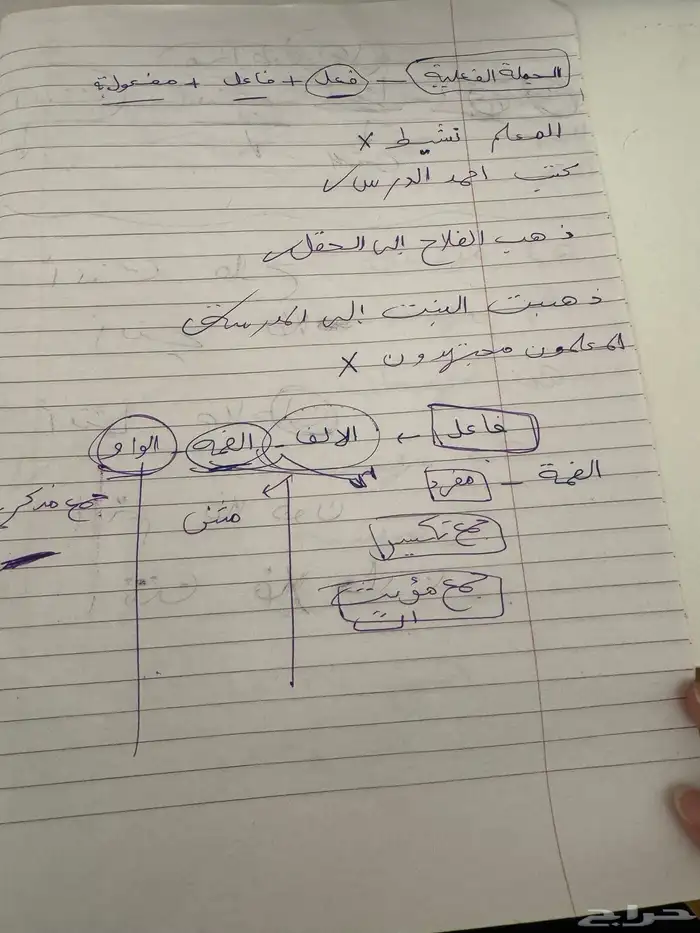 الجملة الفعلية - فعل + فاعل + مفعول به
المعلم نشيط ×
كتب احمد الدرس ✓
ذهب الفلاح الى الحقل ✓
ذهبت البنت إلى المدرسة ✓
المعلمون مجتهدون ×
فاعل ← الالف - الضمة - الواو
الضمة - مفرد
مثنى
جمع مذكر
جمع تكسير
جمع مؤنث
ات
حراج